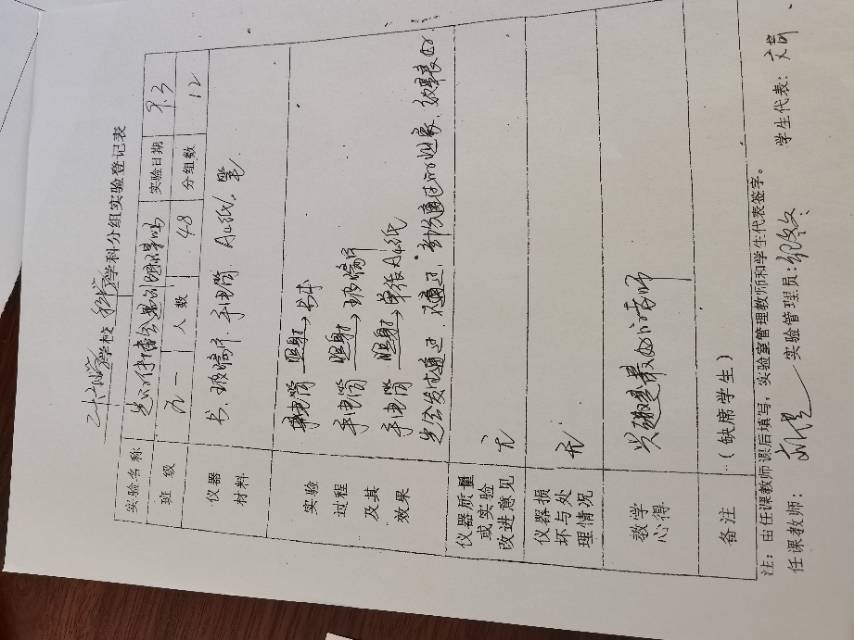 学校 科学 学科分组实验登记表
实验名称 光的传播会遇到阻碍吗 实验日期 9.3
班 级 五一 人 数 48 分组数 12
仪器材料 书、玻璃片、手电筒、A4纸、笔
实验过程及其效果
手电筒 照射→书本
手电筒 照射→玻璃片
手电筒 照射→单张A4纸
光会发生通过、不通过、部分通过的现象、效果良好
仪器质量或实验改进意见 无
仪器损坏与处理情况 无
教学心得 兴趣是最好的老师
备注 （缺席学生）
注：由任课教师课后填写，实验室管理教师和学生代表签字。
任课教师： 实验管理员： 学生代表：